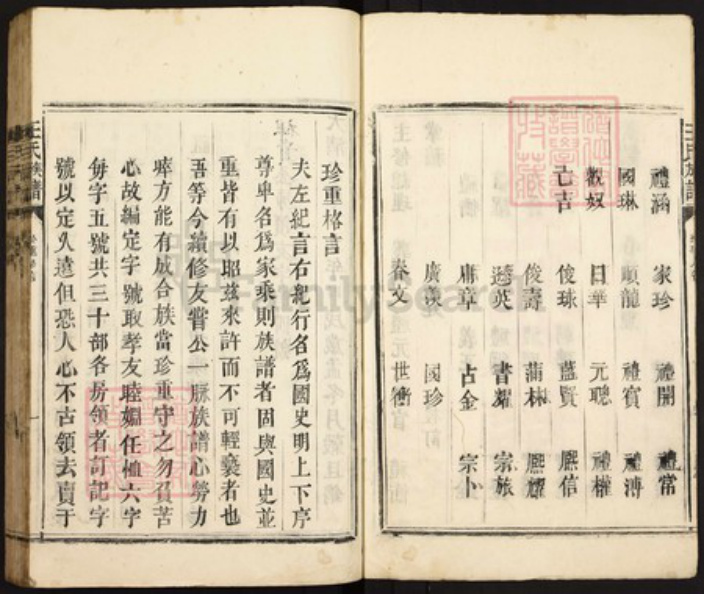 禮涵 家珍 禮開 禮常
國琳 順龍 禮賓 禮溥
數奴 日華 元聰 禮權
亡吉 俊球 藍賢 熙信
俊壽 蒲林 熙耀
遜英 書耀 宗旅
庸章 占金 宗卜
廣漢 國珍
春文 世衡
珍重格言
夫左紀言右紀行名爲國史明上下序
尊卑名爲家乘則族譜者固與國史並
重皆有以昭茲來許而不可輕褻者也
吾等今續修友嘗公一脈族譜心勞力
瘁方能有成合族當珍重守之勿負苦
心故編定字號取孝友睦婣任恤六字
每字五號共三十部各房領者訂記字
號以定久遠但恐人心不古領去賣于
王氏族譜
FamilySearch